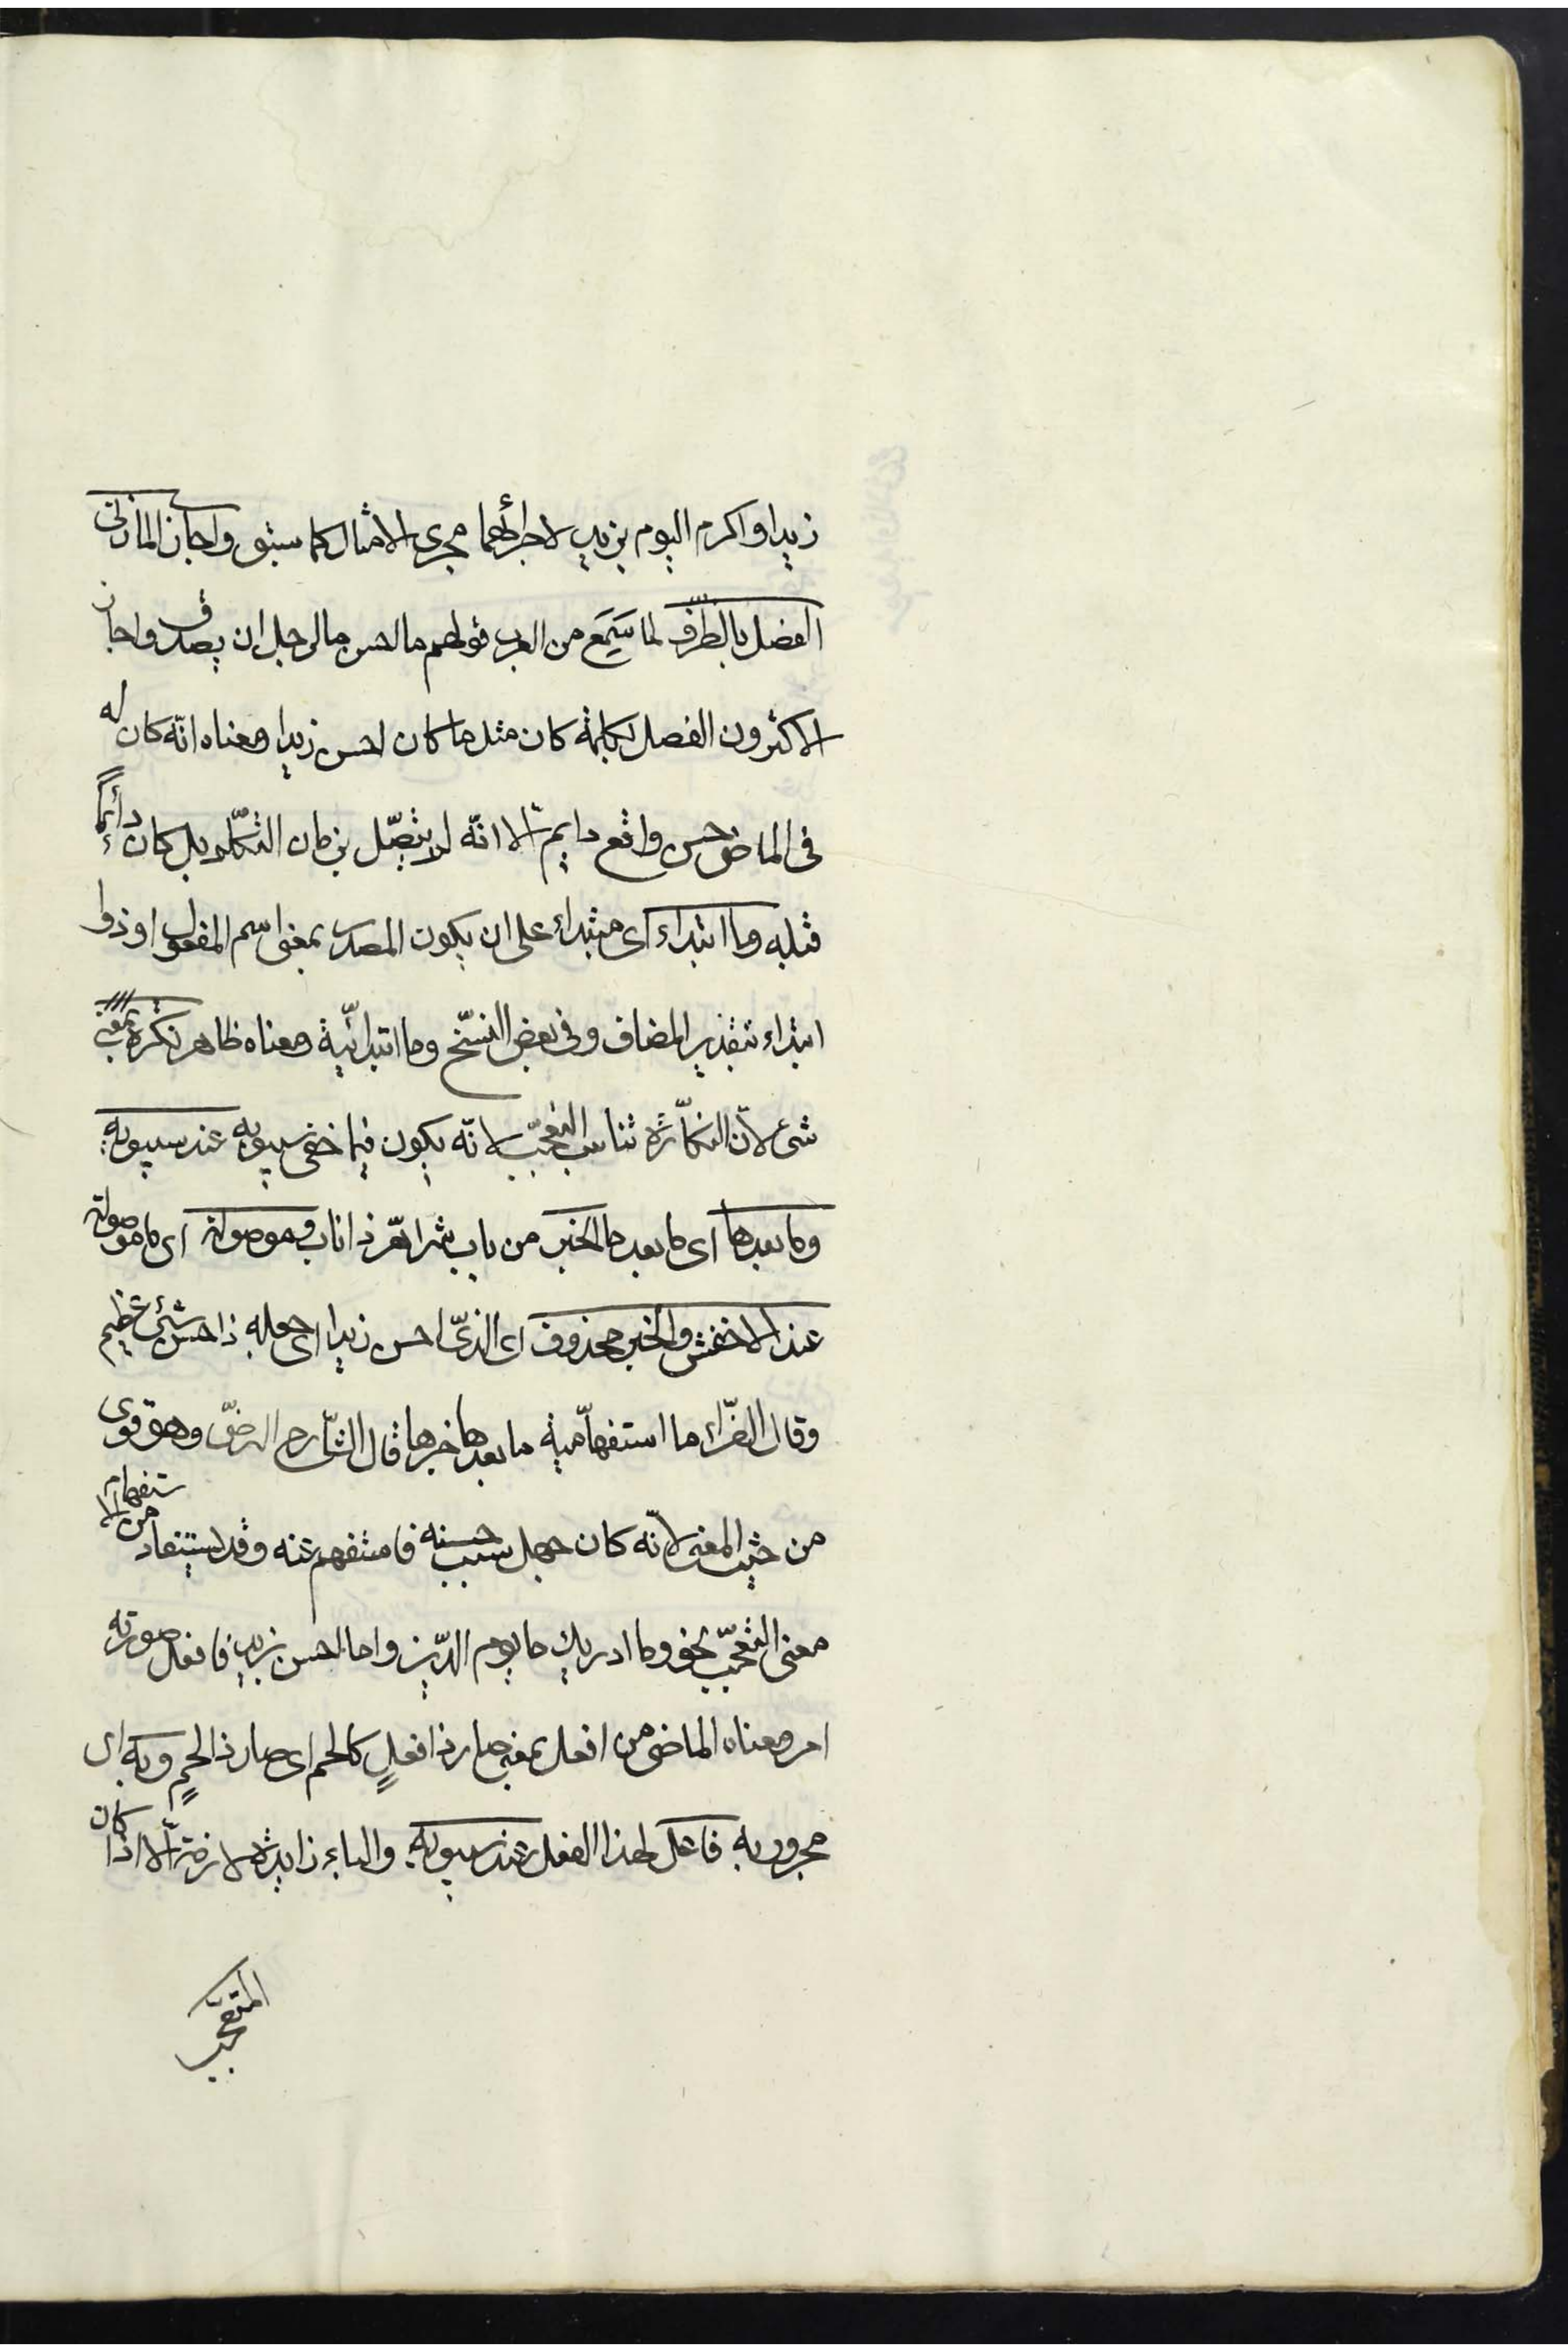 زيدا واكرم اليوم بزيد لاجرائهما مجرى الامثال كما سبق واجاز المازنى
الفصل بالظرف لما سمع من العرب قولهم ما احسن بالرجل ان يصدق واجاز
الاكثرون الفصل بكلمة كان مثل ما كان احسن زيدا ومعناه انه كان له
فى الماضى حسن واقع دايم الا انه لم يتصل بزمان التكلم بل كان دائما
قبله وما ابتداء اى مبتداء على ان يكون المصدر بمعنى اسم المفعول او ذوا
ابتداء بتقدير المضاف وفى بعض النسخ وما ابتدائية ومعناه ظاهر نكرة بمعنى
شئ لان النكارة تناسب التعجب لانه يكون فيما خفى سببه عند سيبويه
وما بعدها اى ما بعد ما الخبر من باب شر اهر ذا ناب وموصولة اى ما موصولة
عند الاخفش والخبر محذوف اى الذى احسن زيدا اى جعله ذا حسن شئ عظيم
وقال الفراء ما استفهامية ما بعدها خبرها قال الشارح الرضى وهو قوى
من حيث المعنى لانه كان جهل سبب حسنه فاستفهم عنه وقد يستفاد من الاستفهام
معنى التعجب نحو وما ادريك ما يوم الدين واما احسن بزيد فافعل صورته
امر ومعناه الماضى من افعل بمعنى صار ذا فعل كالحم اى صار ذا لحم وبه اى
مجرور به فاعل لهذا الفعل عند سيبويه والباء زايدة لازمة الا اذا كان
المتعجب